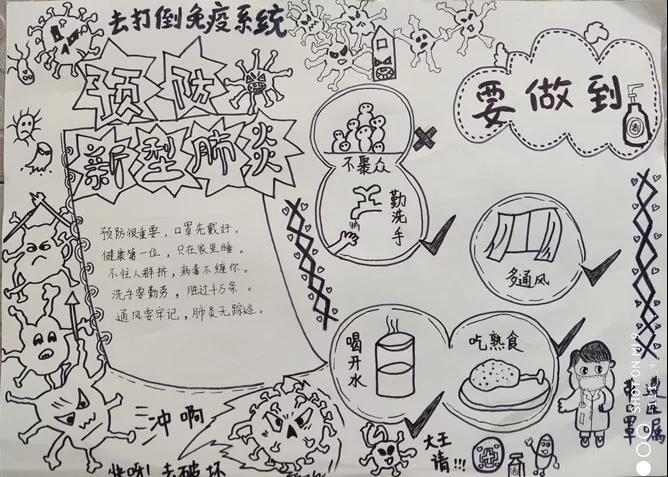 去打倒免疫系统
预防
新型肺炎
要做到
不聚众
勤洗手
多通风
预防很重要，口罩先戴好。
健康第一位，只在家里睡。
不往人群挤，病毒不缠你。
洗手要勤劳，
通风要牢记，肺炎无踪迹。
喝开水
吃熟食
冲啊
大王
请!!!
去破坏
SHOT ON MI 9